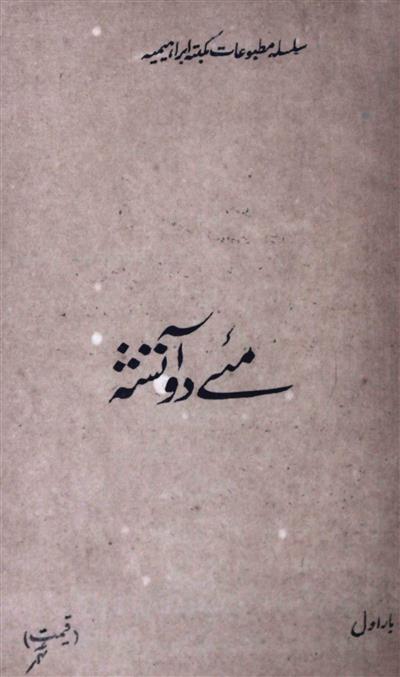 سلسلہ مطبوعات مکتبہ ابراہیمیہ
مئے دو آتشہ
بار اول
(قیمت)